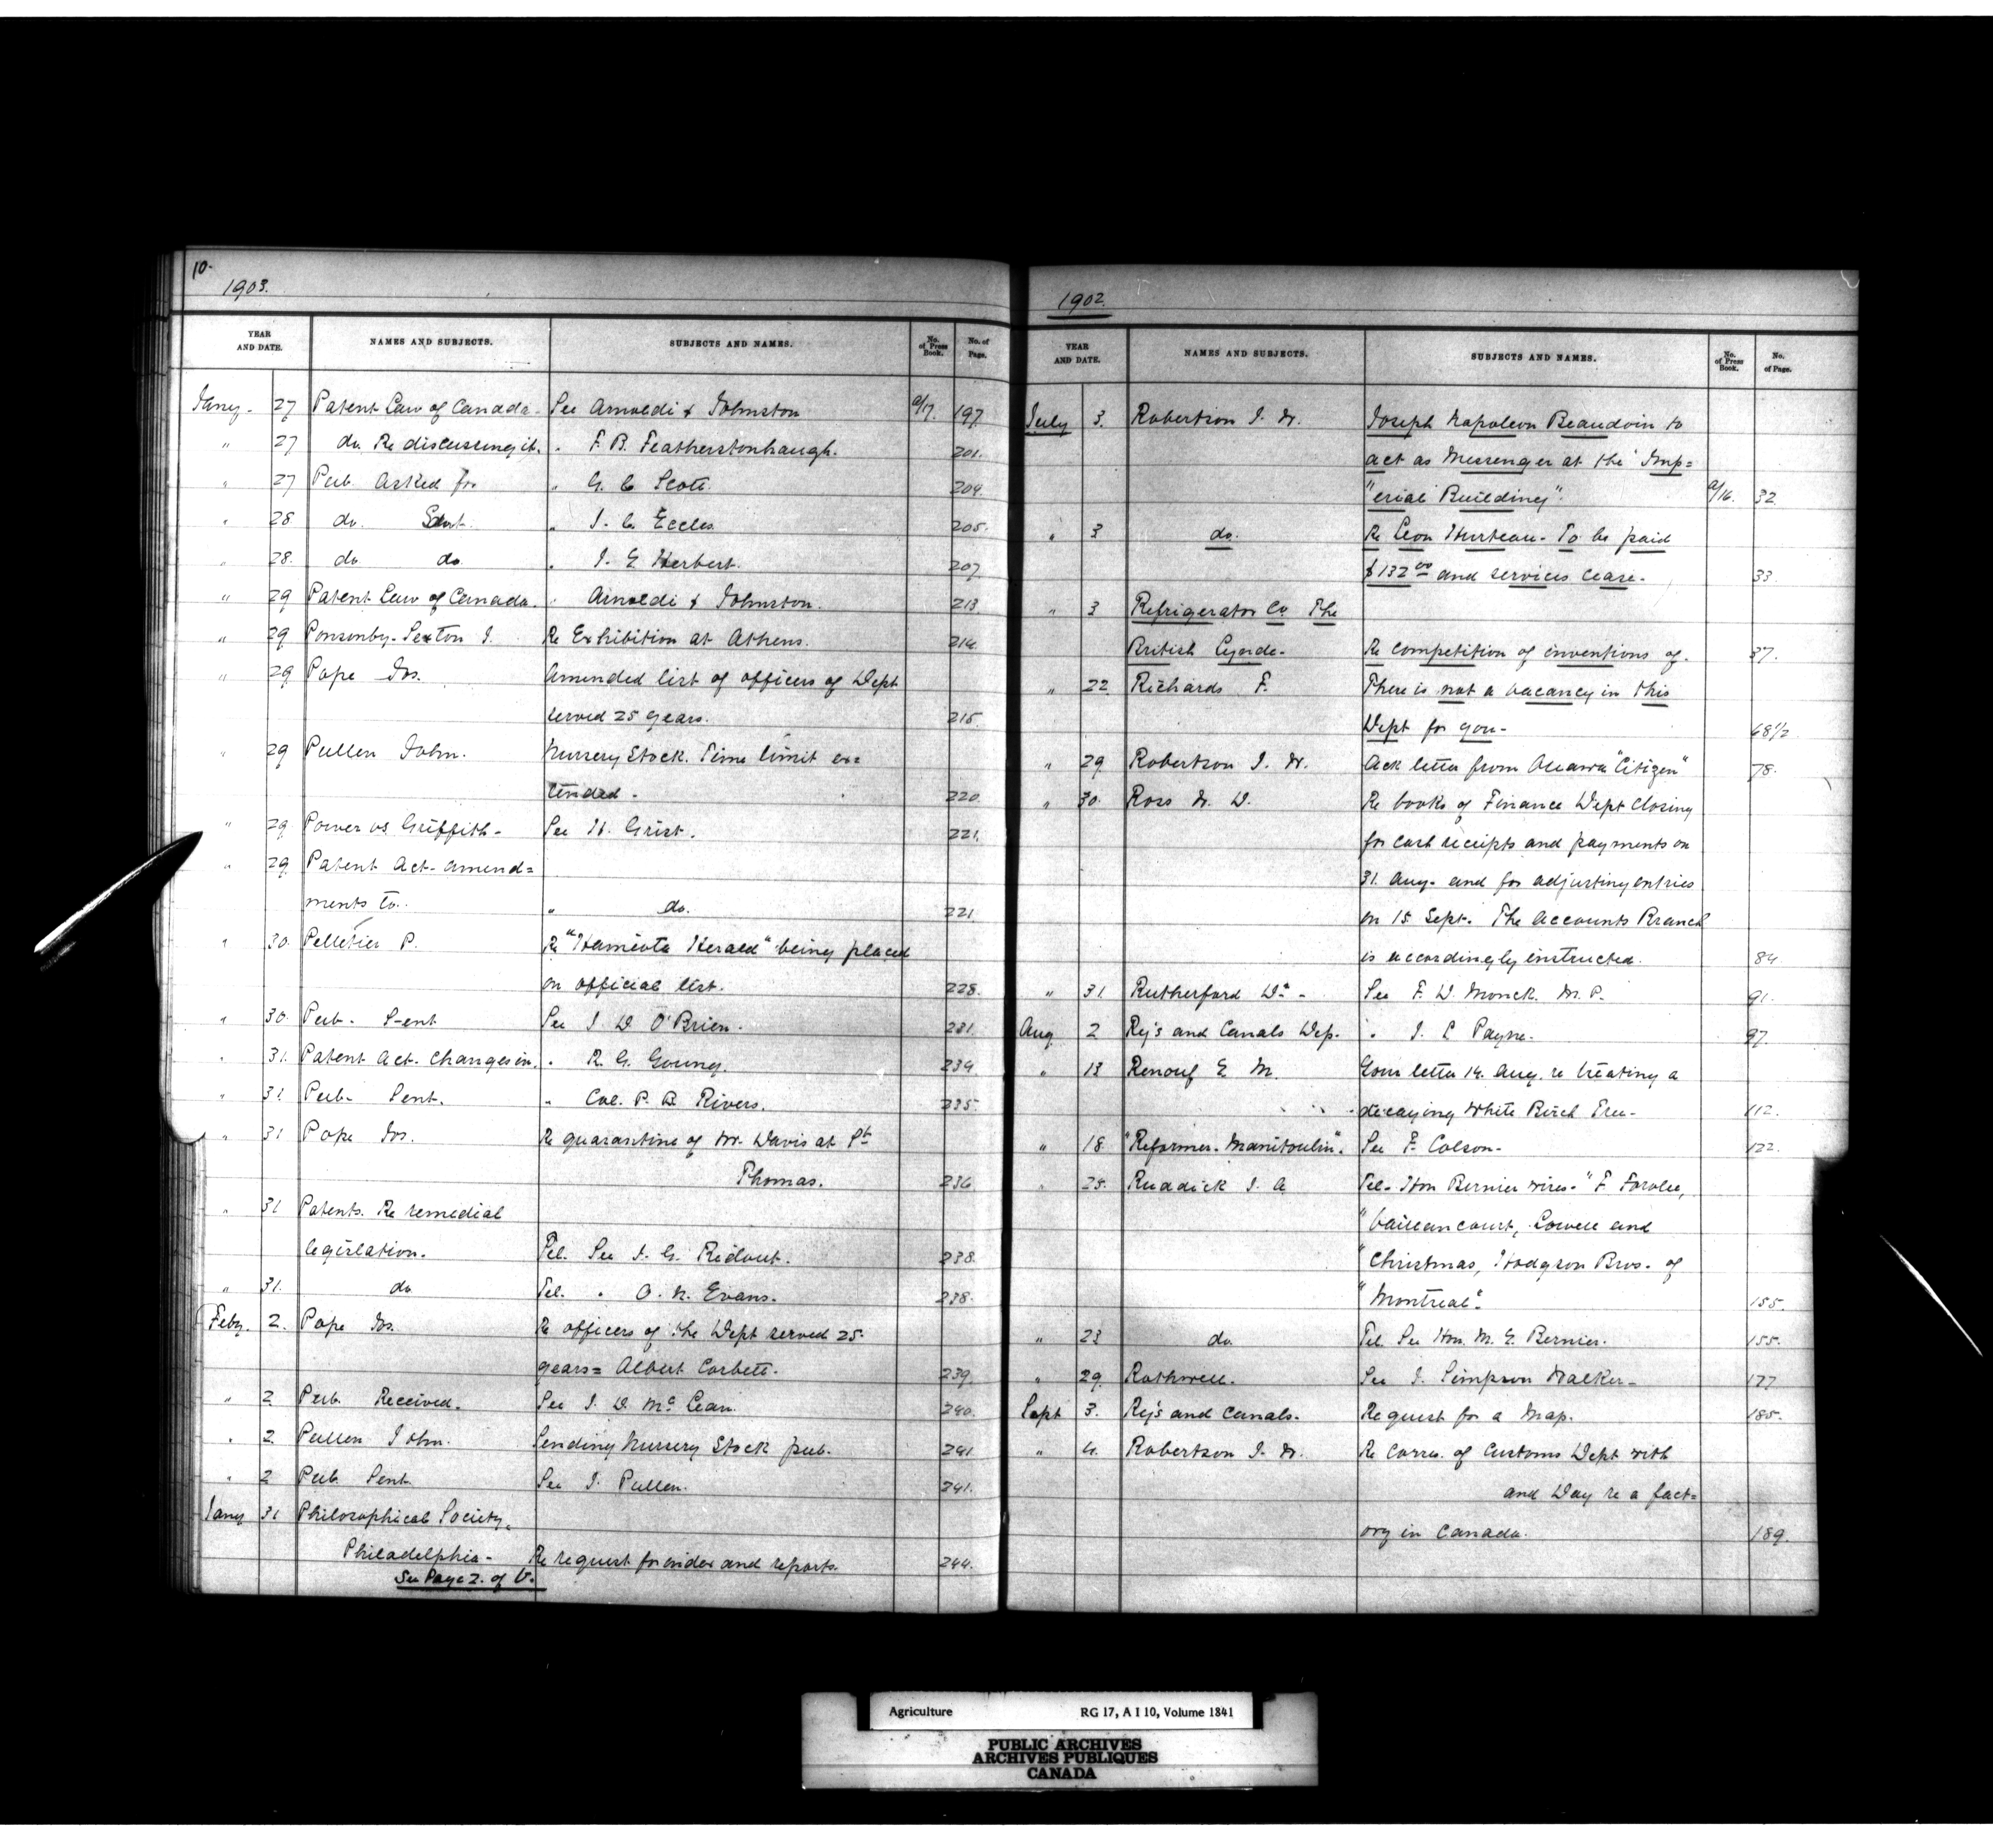 10.
1903.
YEAR AND DATE. NAMES AND SUBJECTS. SUBJECTS AND NAMES. No. of Press Book. No. of Page.
Jany. 27 Patent Law of Canada. See Arnoldi & Johnston a/17. 197.
" 27 do. Re discussing it. " F. B. Featherstonhaugh. 201.
" 27 Pub. asked for " G. C. Scott. 204.
" 28 do. Sent. " J. C. Eccles 205.
" 28. do do " J. E. Herbert. 207.
" 29 Patent Law of Canada. " Arnoldi & Johnston. 213.
" 29 Ponsonby-Sexton J. Re Exhibition at Athens. 214.
" 29 Pope Jos. Amended list of officers of Dept
served 25 years. 215.
" 29 Pullen John. Nursery Stock. Time limit ex=
tended. 220.
" 29 Power vs Griffith- See H. Grist. 221.
" 29. Patent Act-amend=
ments to. " do. 221
" 30. Pelletier P. Re "Hamiota Herald" being placed
on official list. 228.
" 30. Pub- Sent See J. D. O'Brien. 231.
" 31. Patent Act. Changes in. " R. G. Young. 234
" 31. Pub- Sent. " Col. P. B. Rivers. 235.
" 31 Pope Jos. Re quarantine of W. Davis at St
Thomas. 236
" 31 Patents. Re remedial
legislation. Tel. See J. G. Ridout. 238.
" 31. do Tel. " O. N. Evans. 238.
Feby. 2. Pope Jos. Re officers of the Dept served 25
years= Albert Corbett. 239.
" 2 Pub. Received. See J. D. McLean. 240.
" 2. Pullen John. Sending Nursery Stock pub. 241
" 2 Pub. Sent See J. Pullen. 241.
Jany 31 Philosophical Society,
Philadelphia- Re request for index and reports. 244.
See Page 2. of V.
1902.
YEAR AND DATE. NAMES AND SUBJECTS. SUBJECTS AND NAMES. No. of Press Book. No. of Page.
July 3. Robertson J. W. Joseph Napoleon Beaudoin to
act as Messenger at the "Imp=
"erial Building". a/16. 32
" 3 do. Re Leon Hurteau- To be paid
$132.00 and services cease. 33
" 3 Refrigerator Co The
British Lynde- Re competition of inventions of. 37.
" 22. Richards F. There is not a vacancy in this
Dept for you- 68 1/2
" 29 Robertson J. W. Ack letter from Ottawa "Citizen" 78.
" 30. Ross W. D. Re books of Finance Dept closing
for cash receipts and payments on
31. Aug. and for adjusting entries
on 15 Sept. The accounts Branch
is accordingly instructed. 84
" 31. Rutherford Dr - See F. D. Monck. M.P. 91.
Aug. 2 Rys and Canals Dep. " J. L Payne. 97.
" 13 Renouf E. M. Your letter 14. Aug. re treating a
decaying White Birch Tree- 112.
" 18. "Reformer. Manitoulin". See F. Colson- 122.
" 28. Ruddick J. A Tel- Hon Bernier wires- "F. Favolle,
"Vaillancourt, Lowell and
"Christmas, Hodgson Bros. of
"Montreal". 155.
" 23 do. Tel. See Hon. M. E. Bernier. 155.
" 29. Rothwell. See J. Simpson Walker- 177
Sept 3. Rys and Canals. Request for a Map. 185.
" 4. Robertson J. W. Re Corres. of Customs Dept with
and Day re a fact=
ory in Canada. 189.
Agriculture RG 17, A I 10, Volume 1841
PUBLIC ARCHIVES
ARCHIVES PUBLIQUES
CANADA